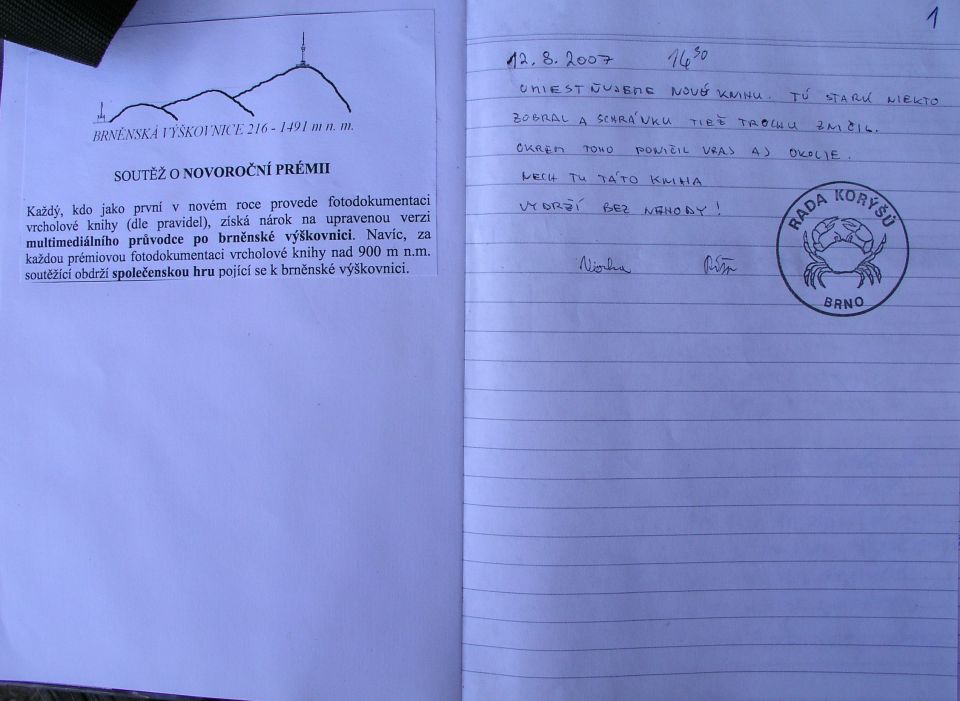 BRNĚNSKÁ VÝŠKOVNICE 216 - 1491 m n. m.
SOUTĚŽ O NOVOROČNÍ PRÉMII
Každý, kdo jako první v novém roce provede fotodokumentaci
vrcholové knihy (dle pravidel), získá nárok na upravenou verzi
multimediálního průvodce po brněnské výškovnici. Navíc, za
každou prémiovou fotodokumentaci vrcholové knihy nad 900 m n.m.
soutěžící obdrží společenskou hru pojící se k brněnské výškovnici.
1
12.8.2007 14 30
UMIESTŇUJEME NOVÚ KNIHU. TÚ STARÚ NIEKTO
ZOBRAL A SCHRÁNKU TIEŽ TROCHU ZNIČIL.
OKREM TOHO PONIČIL VRAJ AJ OKOLIE.
NECH TU TÁTO KNIHA
VYDRŽÍ BEZ NEHODY!
RADA KORÝŠŮ
BRNO